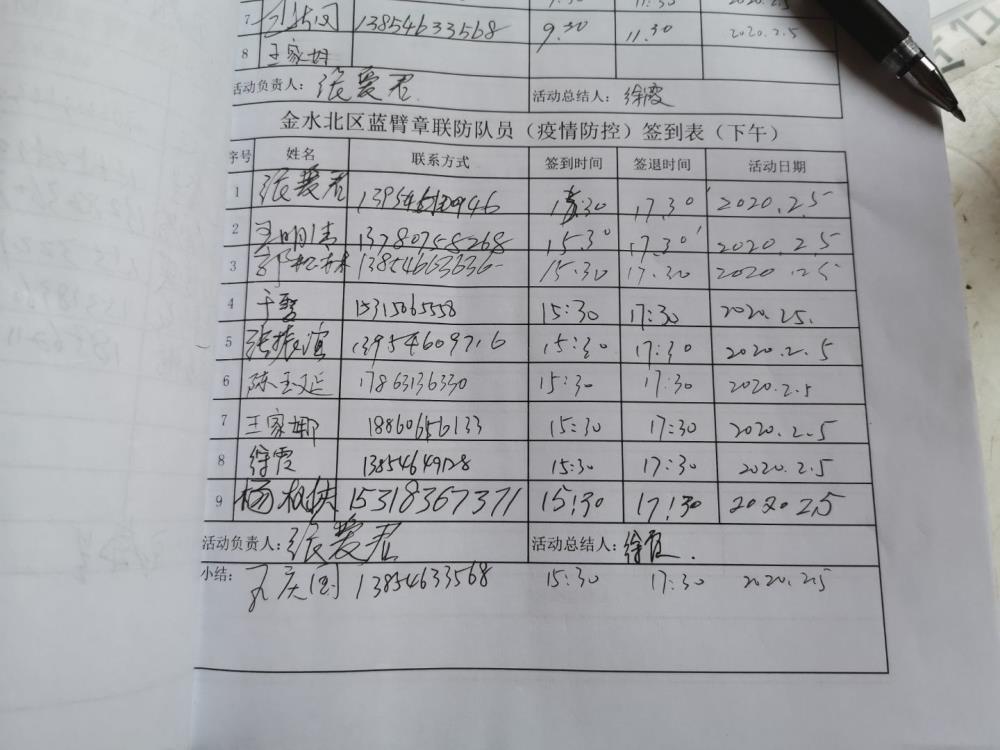 7 13854633568 9.30 11.30 2020.2.5
8 王家娜
活动负责人： 张爱君 活动总结人： 徐霞
金水北区蓝臂章联防队员（疫情防控）签到表（下午）
序号 姓名 联系方式 签到时间 签退时间 活动日期
1 张爱君 15:30 17.30 2020.2.5
2 王明清 13780758268 15.30 17.30 2020.2.5
3 郭松林 13854663636 15:30 17:30 2020.2.5
4 于雪 15315065558 15:30 17:30 2020.25.
5 张振滨 13954609716 15:30 17:30 2020.2.5
6 陈玉延 17863136330 15:30 17:30 2020.2.5
7 王家娜 18860656133 15:30 17:30 2020.2.5
8 徐霞 13854649128 15:30 17:30 2020.2.5
9 杨 15318367371 15:30 17:30 2020.2.5
活动负责人： 张爱君 活动总结人： 徐霞.
小结： 孔庆国 13854633568 15:30 17:30 2020.2.5